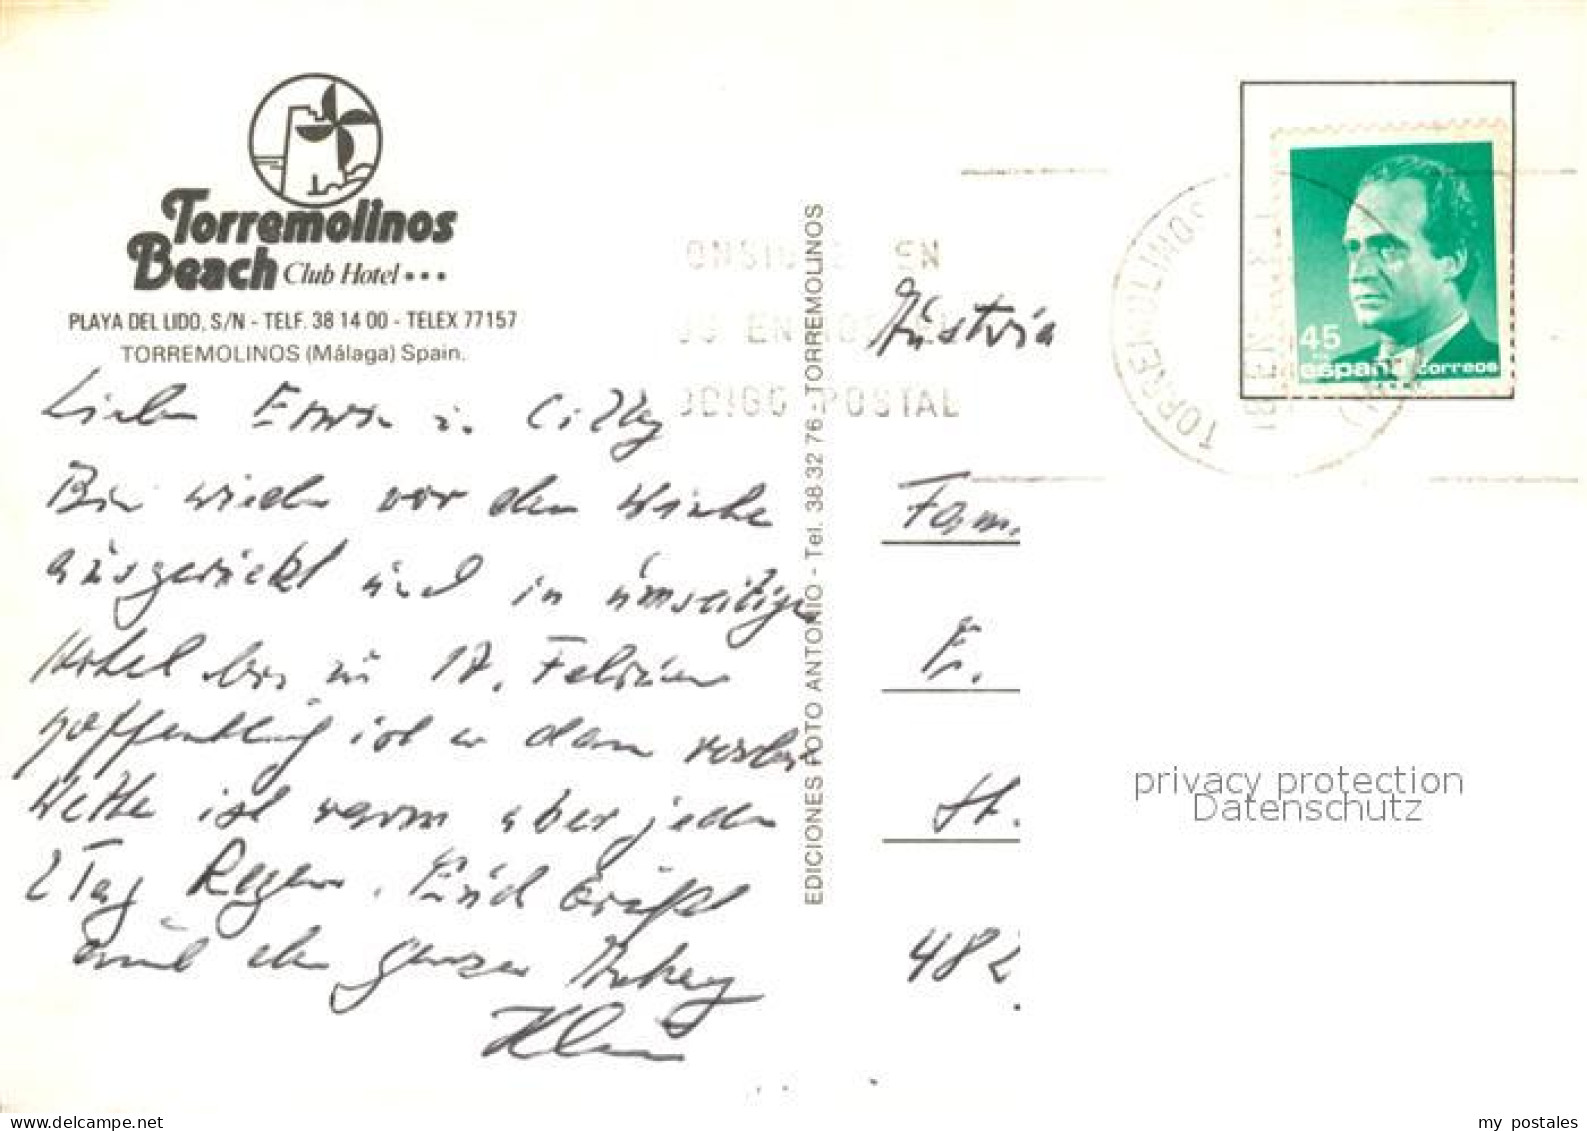 Torremolinos
Beach Club Hotel ...
PLAYA DEL LIDO, S/N - TELF. 38 14 00 - TELEX 77157
TORREMOLINOS (Málaga) Spain.
Liebe Erwin u. Cilly
Bin wieder vor dem Winter
ausgerückt und in umseitigen
Hotel bis zu 17. Februar
hoffentlich ist er dann vorbei
Wetter ist warm aber jeden
2 Tag Regen. Euch Grüßt
und der ganzen
EDICIONES FOTO ANTONIO - Tel. 38 32 76 - TORREMOLINOS
EN
POSTAL
TORREMOLINOS
45
españa correos
Austria
Fam.
E.
St.
482
privacy protection
Datenschutz
my postales